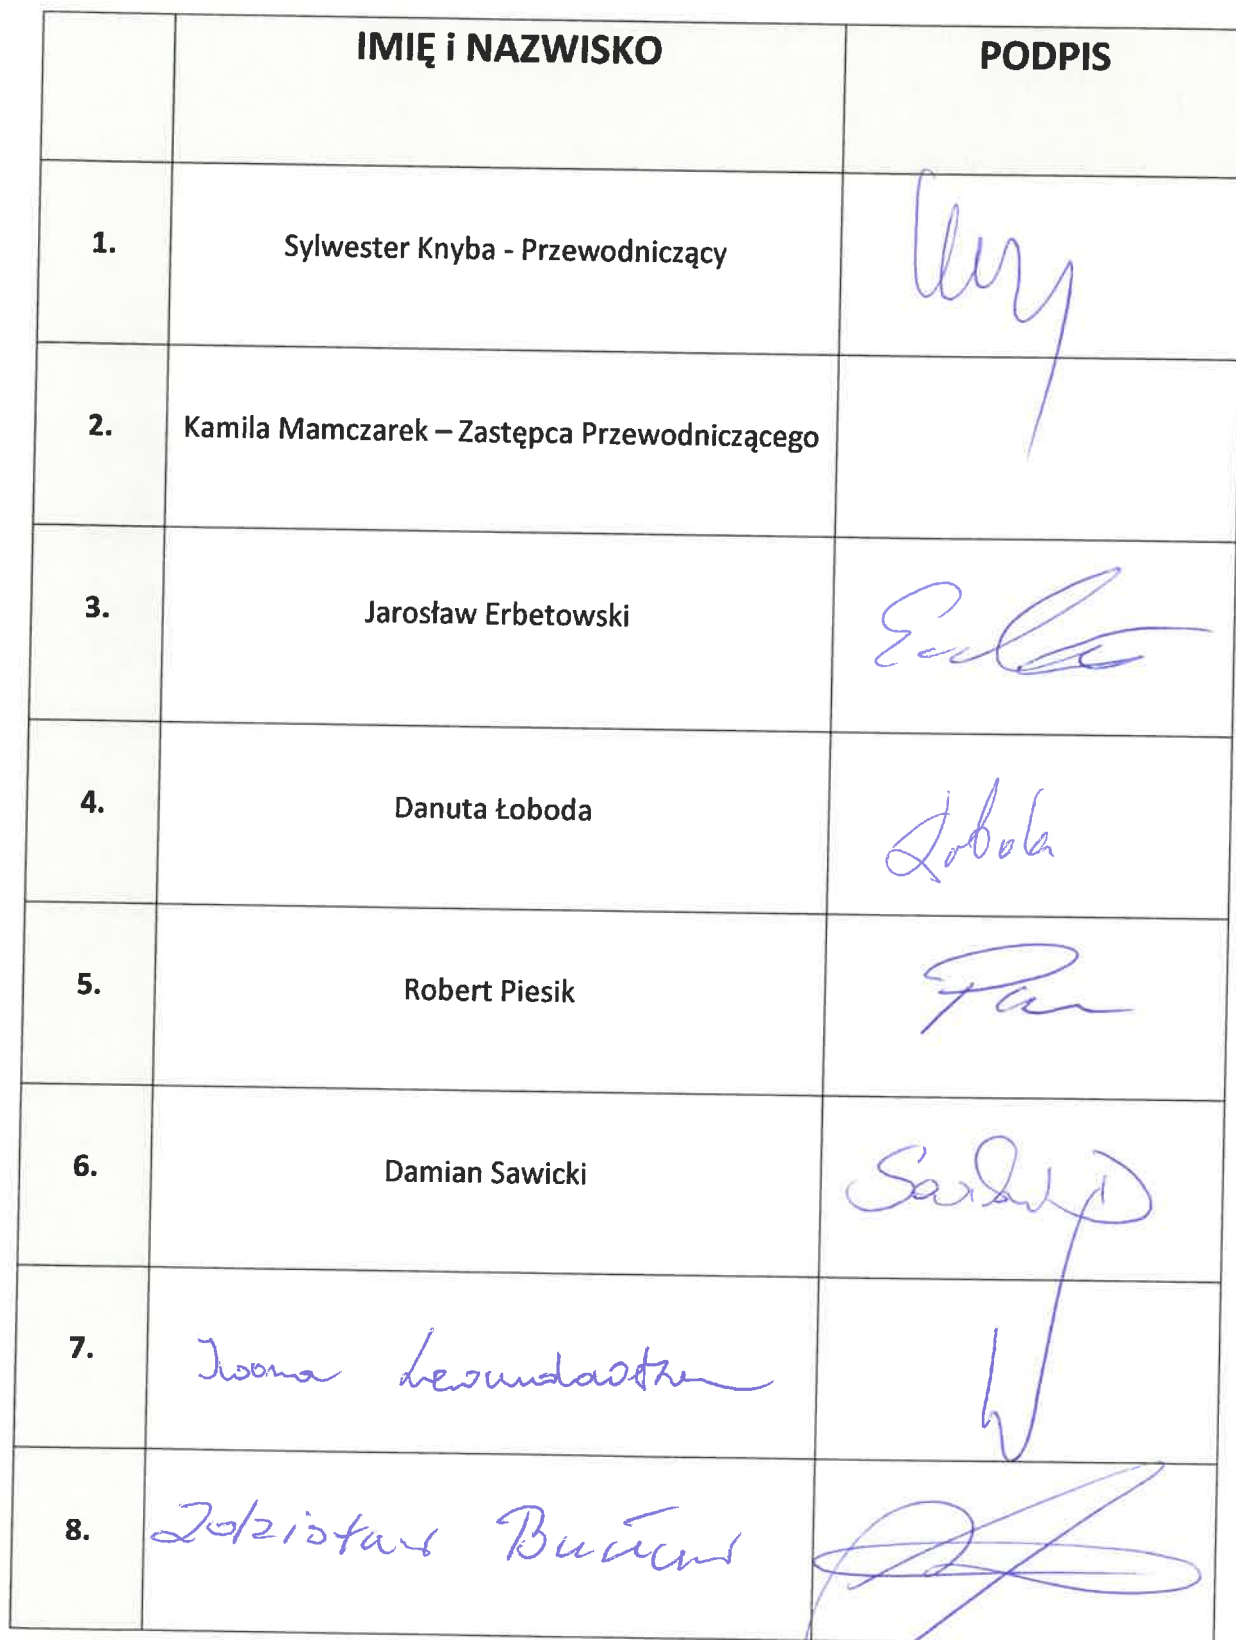 IMIĘ i NAZWISKO PODPIS
1. Sylwester Knyba - Przewodniczący
2. Kamila Mamczarek – Zastępca Przewodniczącego
3. Jarosław Erbetowski
4. Danuta Łoboda Łoboda
5. Robert Piesik
6. Damian Sawicki
7. Iwona Lewandowska
8. Zdzisław